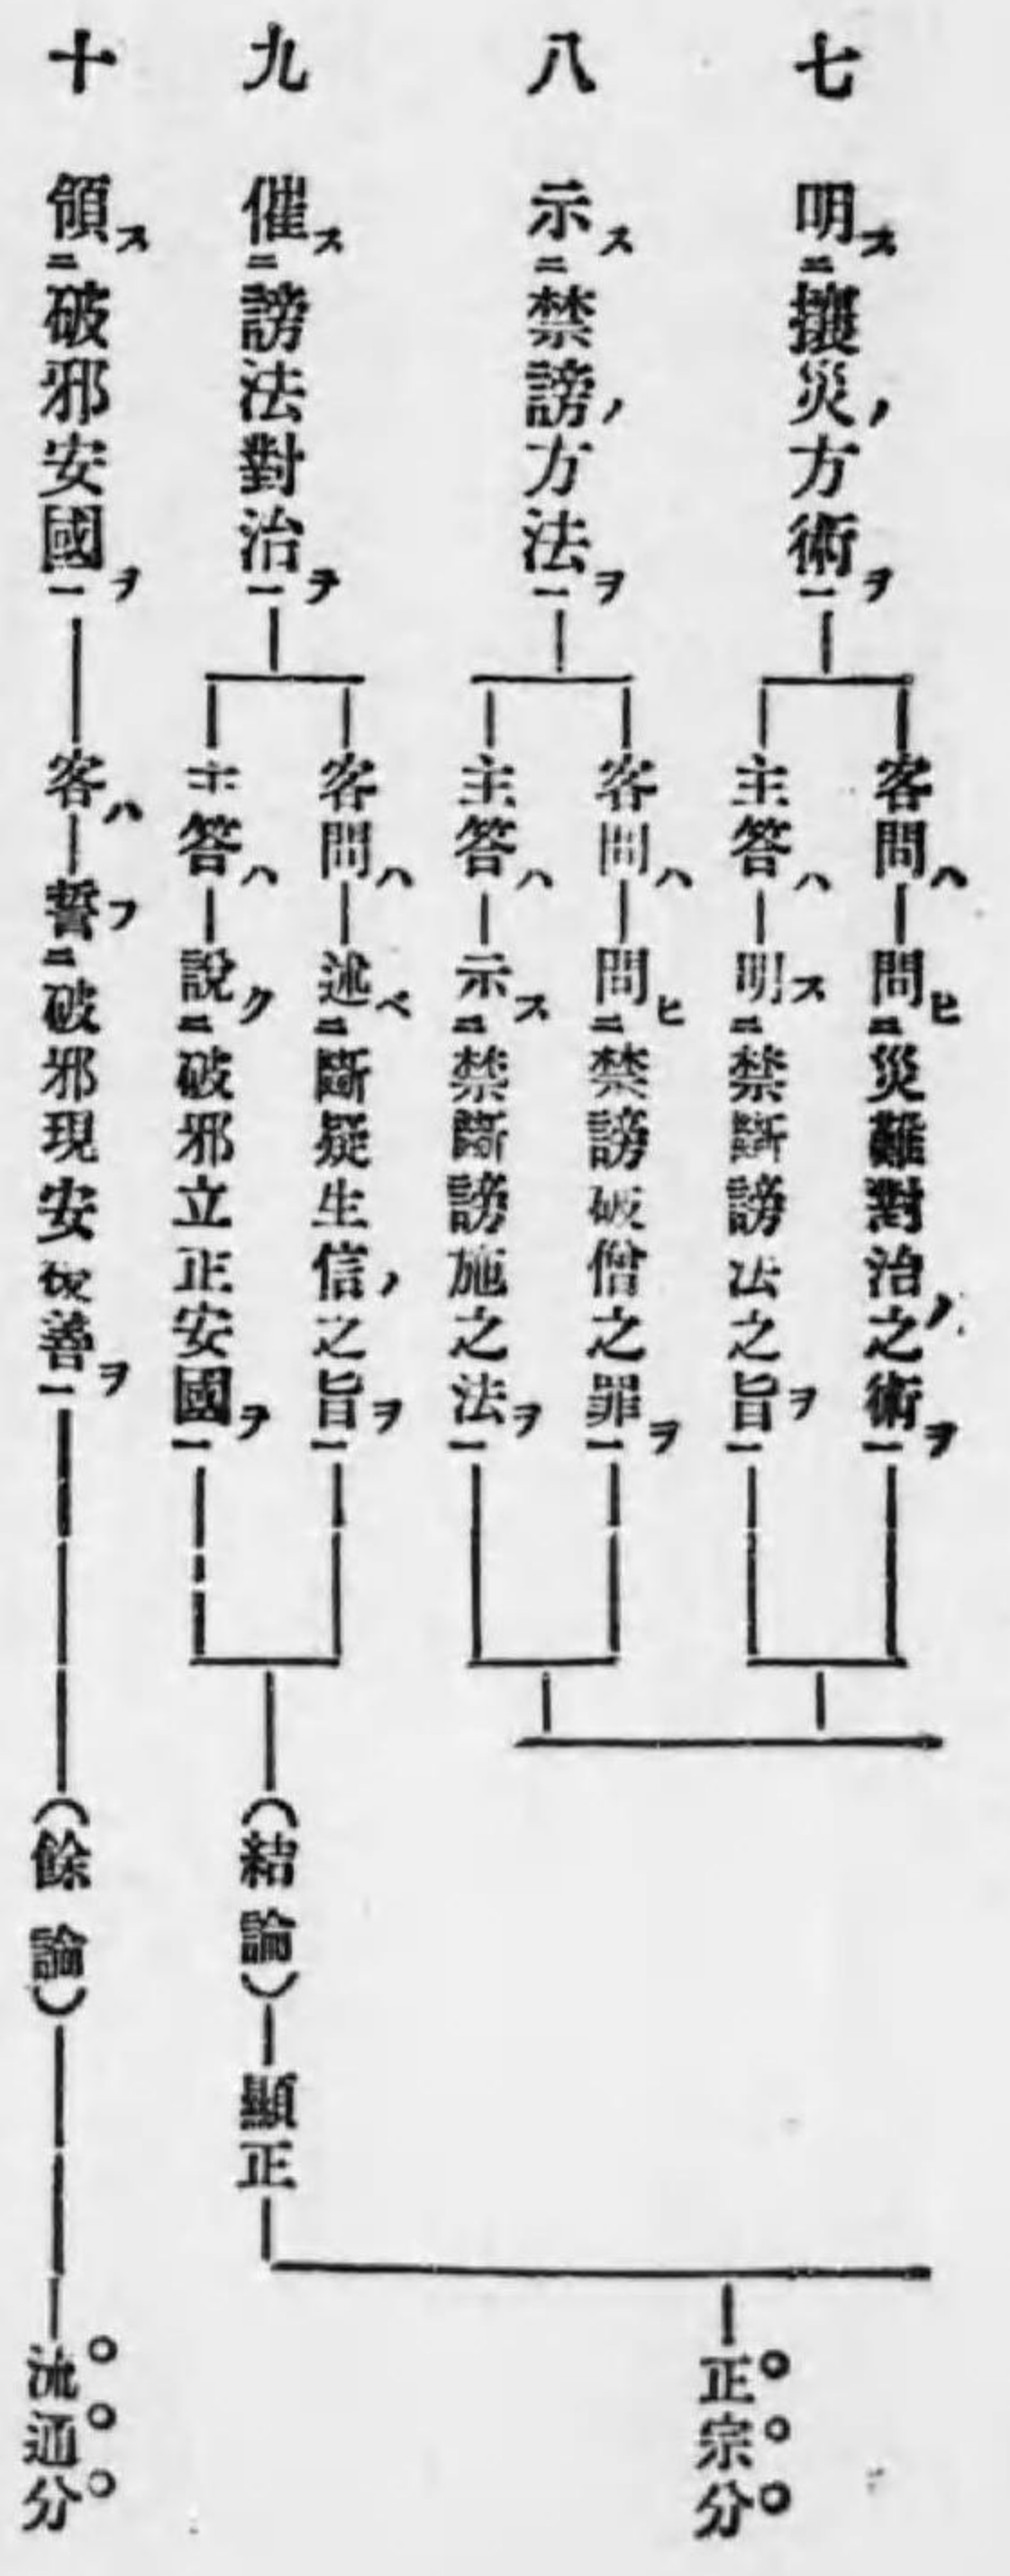 七 明ス㆓攘災ノ方術ヲ㆒
客問ハ 問ヒ㆓災難對治ノ之術ヲ㆒
主答ハ 明ス㆓禁斷謗法之旨ヲ㆒
八 示ス㆓禁謗ノ方法ヲ㆒
客問ハ 問ヒ㆓禁謗破僧之罪ヲ㆒
主答ハ 示ス㆓禁斷謗施之法ヲ㆒
九 催ス㆓謗法對治ヲ㆒
客問ハ 述ベ㆓斷疑生信ノ之旨ヲ㆒
主答ハ 說ク㆓破邪立正安國ヲ㆒
(結論) 顯正
正宗分
十 領ス㆓破邪安國ヲ㆒
客ハ 誓フ㆓破邪現安後善ヲ㆒
(餘論)
流通分